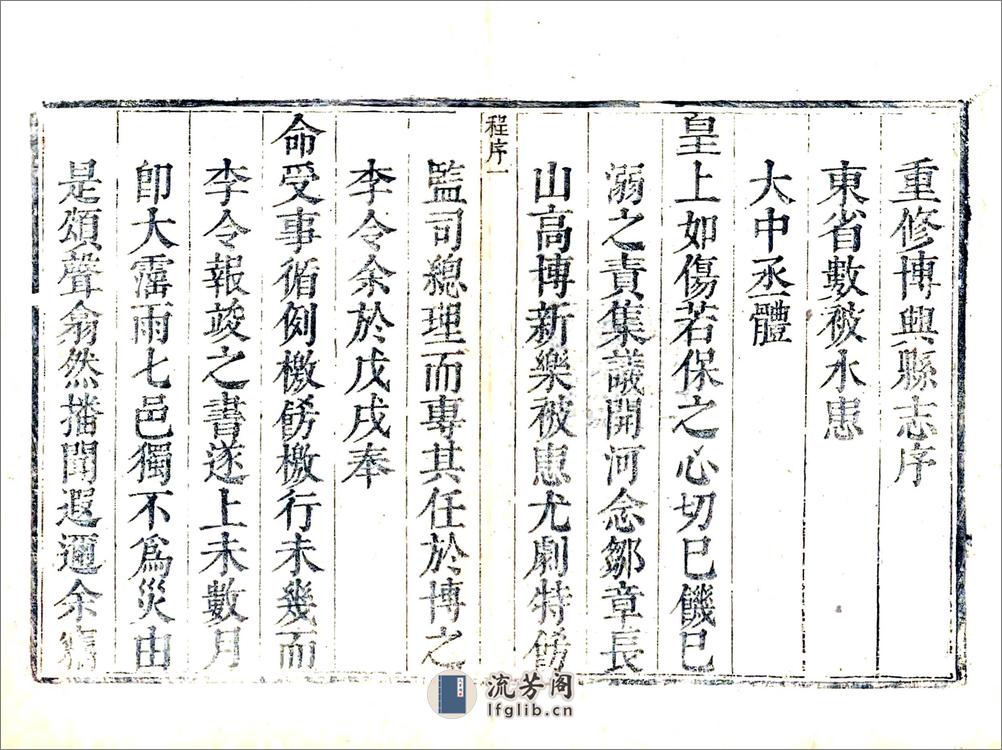 重修博興縣志序
東省數被水患
大中丞體
皇上如傷若保之心切已饑已
溺之責集議開河念鄒章長
山高博新樂被患尤劇特飭
程序一
監司總理而專其任於博之
李令余於戊戌奉
命受事循例檄飭檄行未幾而
李令報竣之書遂上未數月
卽大霪雨七邑獨不爲災由
是頌聲翕然播聞遐邇余
流芳阁
lfglib.cn